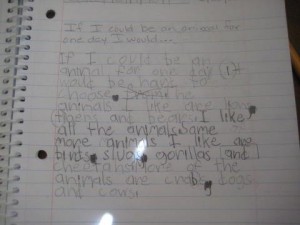 If I could be an animal for
one day I would...
If I could be an
animal for one day (it
would be hard to
choose. The
animals I like are
tigers and I like
all the animals. Some
more animals I like are
birds, slugs, gorillas, and
cheetahs. More of the
animals are crabs, dogs,
and cows.